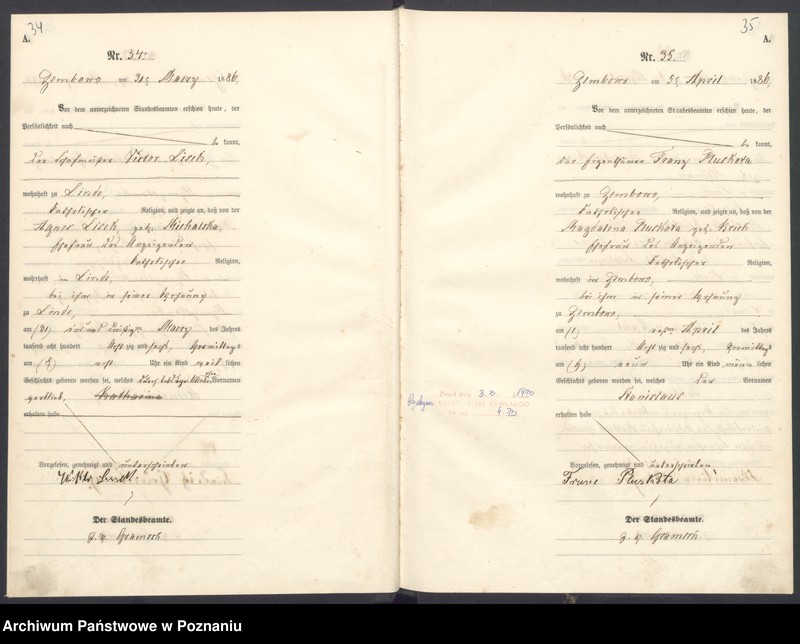 34
A.
Nr. 34.
Zembowo am 31. Maerz 1886.
Vor dem unterzeichneten Standesbeamten erschien heute, der
Persönlichkeit nach
be kannt,
der Victor Lisek,
wohnhaft zu Linde,
katholischer Religion, und zeigte an, daß von der
Agnes Lisek, geb. Michalska,
Ehefrau des Anzeigenden
katholischer Religion,
wohnhaft in Linde,
bei ihm in seiner Wohnung
zu Linde,
am Maerz des Jahres
tausend acht hundert acht zig und sechs, Vormittags
um acht Uhr ein Kind weib lichen
Geschlechts geboren worden sei, welches Vornamen
erhalten habe
Vorgelesen, genehmigt und unterschrieben
Der Standesbeamte.
Gramsch
35
A.
Nr. 35.
Zembowo, am April 1886,
Vor dem unterzeichneten Standesbeamten erschien heute, der
Persönlichkeit nach
be kannt,
der Eigenthümer Franz Pluskota
wohnhaft zu Zembowo,
katholischer Religion, und zeigte an, daß von der
Magdalena Pluskota geb.
Ehefrau des Anzeigenden
katholischer Religion,
wohnhaft in Zembowo,
bei ihm in seiner Wohnung
zu Zembowo,
am April des Jahres
tausend acht hundert acht zig und sechs, Vormittags
um neun Uhr ein Kind männ lichen
Geschlechts geboren worden sei, welches den Vornamen
Stanislaus
erhalten habe
Vorgelesen, genehmigt und unterschrieben
Franc Pluskota
Der Standesbeamte.
Gramsch.
3.3. 1970
4.70
Archiwum Państwowe w Poznaniu